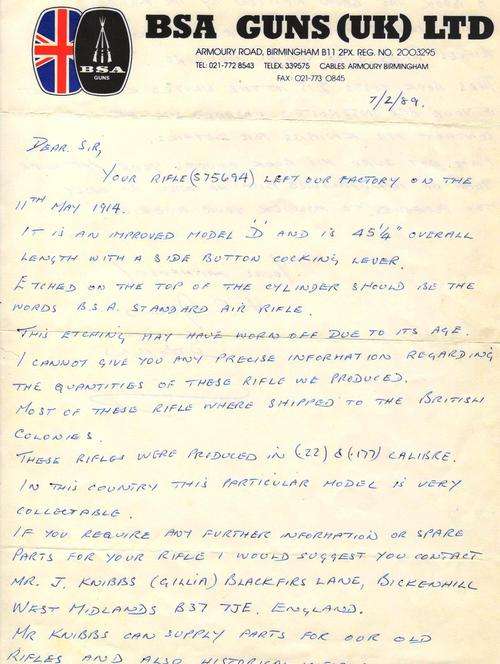 BSA GUNS (UK) LTD
ARMOURY ROAD, BIRMINGHAM B11 2PX. REG. NO. 2003295
TEL: 021-772 8543 TELEX: 339575 CABLES: ARMOURY BIRMINGHAM
FAX: 021-773 0845
BSA
GUNS
7/2/89.
DEAR SIR,
YOUR RIFLE (S75694) LEFT OUR FACTORY ON THE
11TH MAY 1914.
IT IS AN IMPROVED MODEL 'D' AND IS 45¼" OVERALL
LENGTH WITH A SIDE BUTTON COCKING LEVER.
ETCHED ON THE TOP OF THE CYLINDER SHOULD BE THE
WORDS B.S.A. STANDARD AIR RIFLE.
THIS ETCHING MAY HAVE WORN OFF DUE TO ITS AGE.
I CANNOT GIVE YOU ANY PRECISE INFORMATION REGARDING
THE QUANTITIES OF THESE RIFLE WE PRODUCED.
MOST OF THESE RIFLE WHERE SHIPPED TO THE BRITISH
COLONIES.
THESE RIFLES WERE PRODUCED IN (.22) & (.177) CALIBRE.
IN THIS COUNTRY THIS PARTICULAR MODEL IS VERY
COLLECTABLE.
IF YOU REQUIRE ANY FURTHER INFORMATION OR SPARE
PARTS FOR YOUR RIFLE I WOULD SUGGEST YOU CONTACT
MR. J. KNIBBS (GILLIA) BLACKFIRS LANE, BICKENHILL
WEST MIDLANDS B37 7JE. ENGLAND.
MR KNIBBS CAN SUPPLY PARTS FOR OUR OLD
RIFLES AND ALSO HISTORICAL